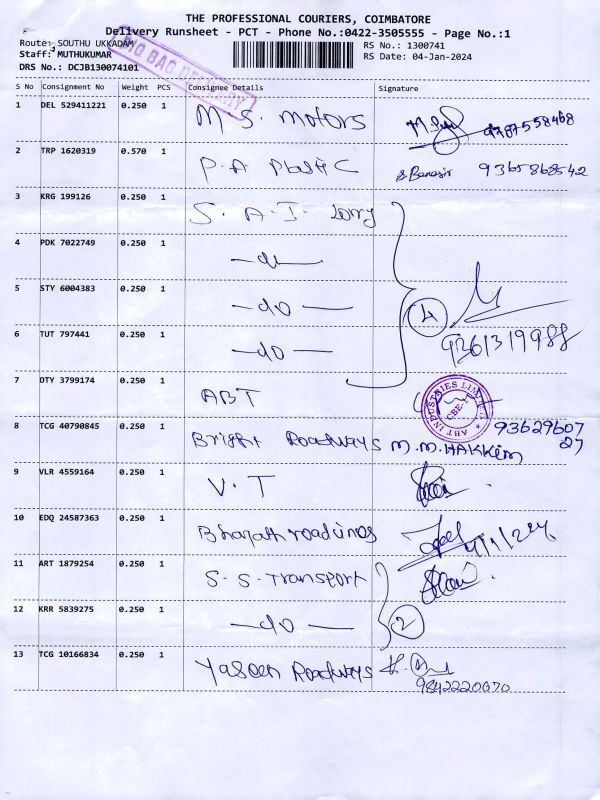 THE PROFESSIONAL COURIERS, COIMBATORE
Delivery Runsheet - PCT - Phone No.:0422-3505555 - Page No.:1
Route: SOUTHU UKKADAM
RS No.: 1300741
Staff: MUTHUKUMAR
RS Date: 04-Jan-2024
DRS No.: DCJB130074101
BIG BAG DELIVERY
S No Consignment No Weight PCS Consignee Details Signature
1 DEL 529411221 0.250 1 M.S. Motors 9787558468
2 TRP 1620319 0.570 1 P.A Plastic 9365868542
3 KRG 199126 0.250 1 S.A.I. Lorry
4 PDK 7022749 0.250 1 —do—
5 STY 6004383 0.250 1 —do— 4
6 TUT 797441 0.250 1 —do— 9361319988
7 OTY 3799174 0.250 1 ABT
ABT INDUSTRIES LIMITED CBE-1
8 TCG 40790845 0.250 1 Bright Roadways M.M.HAKKIM 9362960727
9 VLR 4559164 0.250 1 V.T
10 EDQ 24587363 0.250 1 Bharath roadlines 4/1/24
11 ART 1879254 0.250 1 S.S.Transport
12 KRR 5839275 0.250 1 —do— 2
13 TCG 10166834 0.250 1 Yaseen Roadways 9842220070